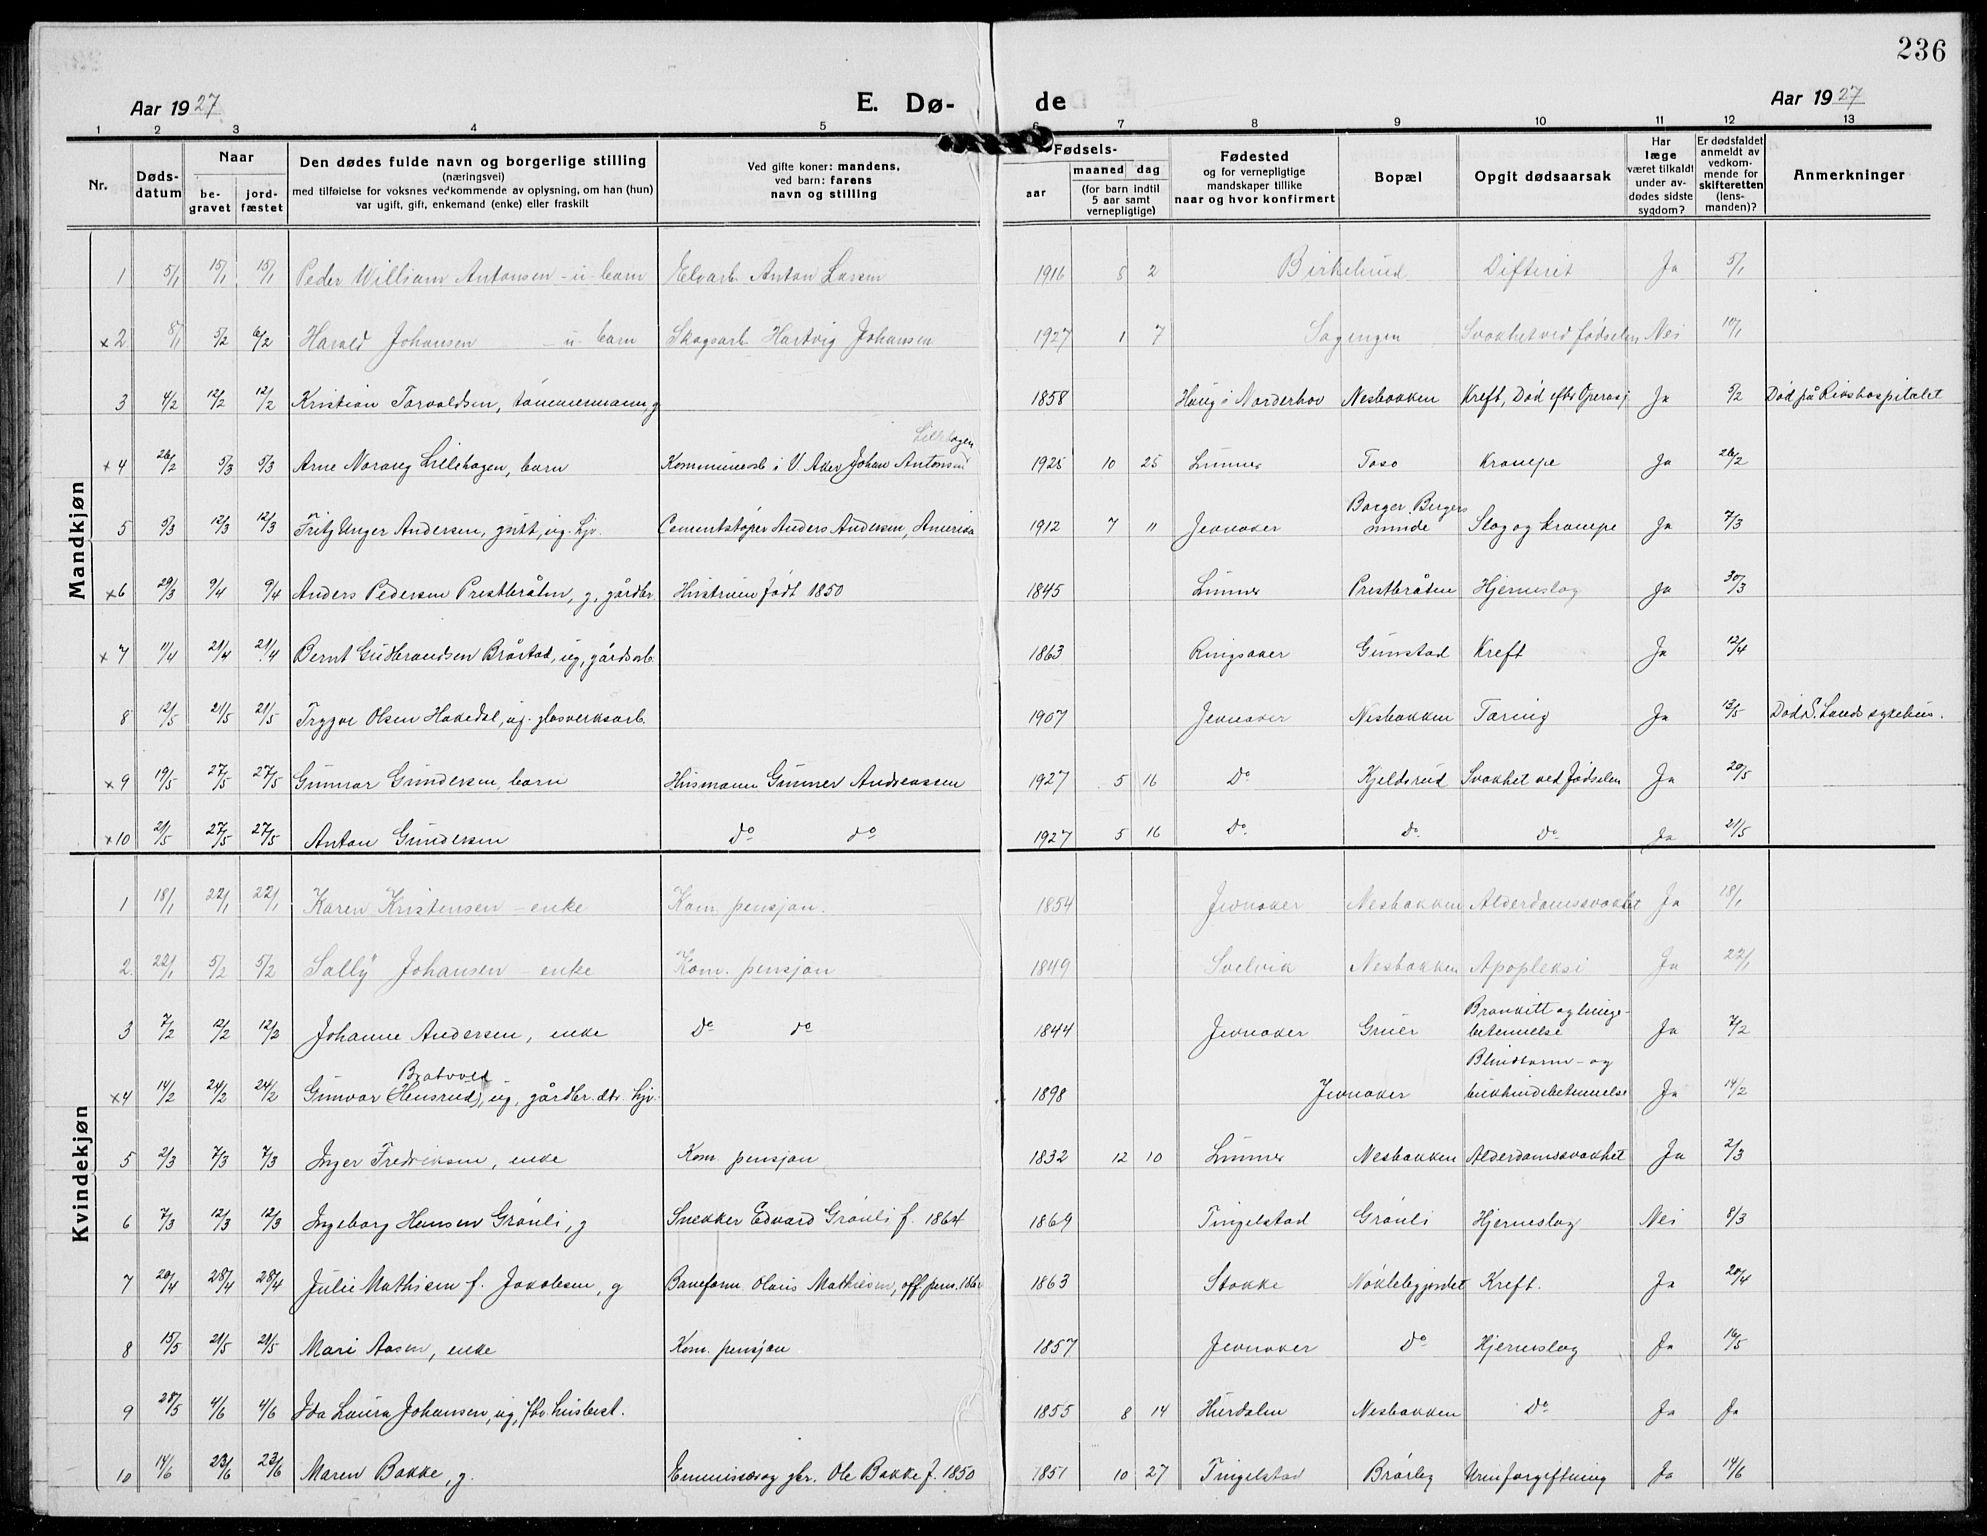 236
Aar 1927 E. Dø- de Aar 1927
1 2 3 4 5 6 7 8 9 10 11 12 13
Nr. Døds-datum Naar be-gravet jord-fæstet Den dødes fulde navn og borgerlige stilling (næringsvei) med tilføielse for voksnes vedkommende av oplysning, om han (hun) var ugift, gift, enkemand (enke) eller fraskilt Ved gifte koner: mandens, ved barn: farens navn og stilling Fødsels- aar maaned dag (for barn indtil 5 aar samt vernepligtige) Fødested og for vernepligtige mandskaper tillike naar og hvor konfirmert Bopæl Opgit dødsaarsak Har læge været tilkaldt under av-dødes sidste sygdom? Er dødsfaldet anmeldt av vedkom-mende for skifteretten (lens-manden)? Anmerkninger
Mandkjøn
1 5/1 15/1 15/1 Peder William Antonsen - u - barn Elvarb. Anton Larsen 1916 8 2 Birkelund Difterit Ja 5/1
x2 8/1 5/2 6/2 Harald Johansen - u - barn Skogsarb. Hartvig Johansen 1927 1 7 Sagengen Svakhet ved fødselen Nei 10/1
3 4/2 12/2 12/2 Kristian Torvaldsen, tømmermann, g Haug i Norderhov 1858 Nesbakken Kreft, Død efter Operasj Ja 5/2 Død på Rikshospitalet
Lillehagen
x4 26/2 5/3 5/3 Arne Norveg Lillehagen, barn Kommunearb. i V. Aker Johan Antonsen 1925 10 25 Lunner Toso Krampe Ja 26/2
5 5/3 12/3 12/3 Fritz Unger Andersen, gutt, ug. hjv. Cementstøper Anders Andersen, Amerika 1912 7 11 Jevnaker Borger Bergersminde Slag og krampe Ja 7/3
x6 29/3 9/4 9/4 Anders Pedersen Prestbråten, g, gårdbr. Hustruen født 1850 1845 Lunner Prestbråten Hjerneslag Ja 30/3
x7 11/4 21/4 21/4 Bernt Gudbrandsen Brårstad, ug, gårdsarb. 1863 Ringsaker Gunstad Kreft Ja 12/4
8 12/5 21/5 21/5 Trygve Olsen Hakedal, ug. glasverksarb. 1907 Jevnaker Nesbakken Tæring Ja 13/5 Død S. Lands sykehus.
x9 19/5 27/5 27/5 Gunnar Gundersen, barn Husmann Gunner Andreassen 1927 5 16 Do Kjeldsrud Svakhet ved fødselen Ja 20/5
x10 21/5 27/5 27/5 Anton Gundersen do do 1927 5 16 Do do do Ja 21/5
Kvindekjøn
1 18/1 22/1 22/1 Karen Kristensen - enke Kom. pensjon. 1854 Jevnaker Nesbakken Alderdomssvakhet Ja 18/1
2. 22/1 5/2 5/2 Sally Johansen - enke Kom. pensjon 1849 Svelvik Nesbakken Apopleksi Ja 22/1
3 7/2 12/2 12/2 Johanne Andersen, enke Do do 1844 Jevnaker Gruer Bronkitt og lunge-betennelse Ja 7/2
Bratvold
x4 14/2 24/2 24/2 Gunvor (Hensrud), ug, gårdbr. dtr. hjv. 1898 Jevnaker Blindtarm- og bukhindebetennelse Ja 14/2
5 2/3 7/3 7/3 Inger Fredriksen, enke Kom. pensjon 1832 12 10 Lunner Nesbakken Alderdomssvakhet Ja 2/3
6 7/3 12/3 12/3 Ingeborg Hansen Grønli, g Snekker Edvard Grønli f. 1864 1869 Tingelstad Grønli Hjerneslag Nei 8/3
7 20/4 28/4 28/4 Julie Mathisen f. Jakobsen, g Baneform. Olaus Mathiesen, off. pens. 186 1863 Stokke Nøklebygjordet Kreft. Ja 20/4
8 15/5 21/5 21/5 Mari Aasen, enke Kom. pensjon. 1857 Jevnaker Do Hjerneslag Ja 16/5
9 28/5 4/6 4/6 Ida Laura Johansen, ug, fhv. husbest. 1855 8 14 Hurdalen Nesbakken Do Ja Ja
10 14/6 23/6 23/6 Maren Bakke, g. Emmissær og gbr. Ole Bakke f. 1850 1851 10 27 Tingelstad Brørby Urinforgiftning Ja 14/6